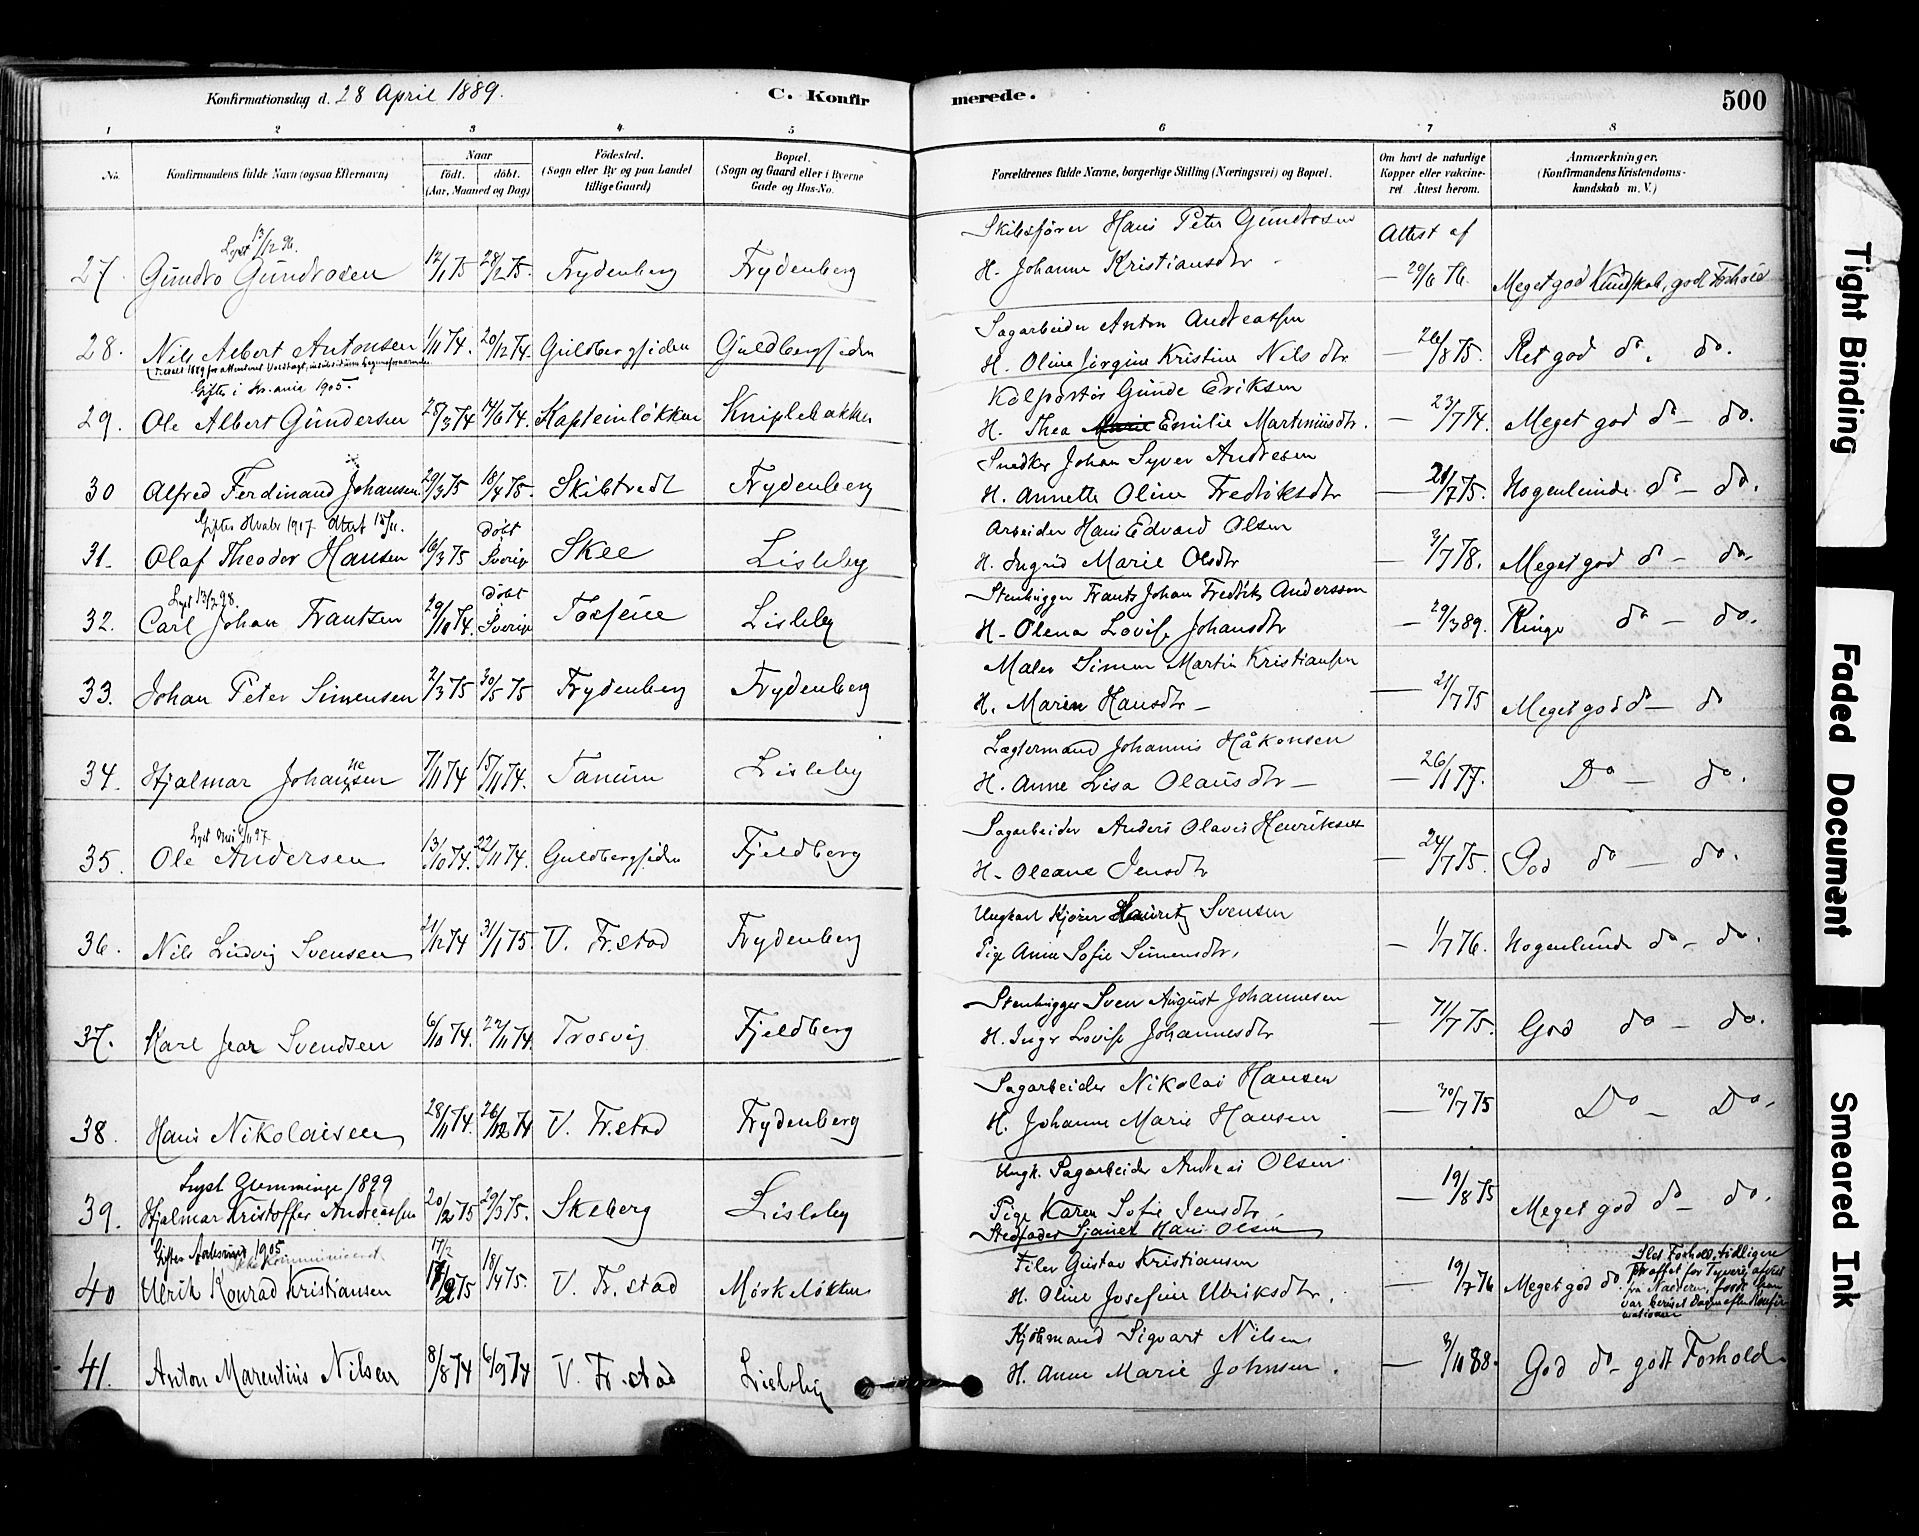 Konfirmationsdag d. 28 April 1889.
C. Konfirmerede.
500
1 2 3 4 5 6 7 8
No. Konfirmandens fulde Navn (ogsaa Efternavn). Naar født. døbt. (Aar, Maaned og Dag). Fødested. (Sogn eller By og paa Landet tillige Gaard) Bopæl. (Sogn og Gaard eller i Byerne Gade og Hus-No. Forældrenes fulde Navne, borgerlige Stilling (Næringsvei) og Bopæl. Om havt de naturlige Kopper eller vakcineret Attest herom. Anmærkninger. (Konfirmandens Kristendomskundskab m. V.)
Lyst 13/12 96.
27. Gundro Gundrosen 12/1 75 28/2 75. Frydenberg Frydenberg
Skibsfører Hans Peter Gundrosen Attest af
H. Johanne Kristiansdtr - 29/6 76. Meget god Kundskab, god Forhold
28. Nils Albert Antonsen 1/11 74. 20/12 74. Guldbergsiden Guldbergsiden
Sagarbeider Anton Andreassen
H. Oline Jørgine Kristine Nilsdtr - 26/8 75. Ret god do. do.
Giftes i Kr.ania 1905.
29. Ole Albert Gundersen 25/3 74 14/6 74. Kapteinløkken Kniplebakken
Kolportør Gunde Eriksen
H. Thea Emilie Martiniusdtr. - 23/7 74. Meget god do - do.
30 Alfred Ferdinand Johansen 29/3 75 18/4 75. Skibtvedt Frydenberg
Snedker Johan Syver Andresen
H. Annette Oline Fredriksdtr - 21/7 75. Nogenlunde do - do.
Giftes Hvaler 1917 Attest 15/11.
31. Olaf Theodor Hansen 16/3 75 Døbt i Sverige Skee Lisleby
Arbeider Hans Edvard Olsen
H. Ingrid Marie Olsdtr - 3/7 78. Meget god do - do.
Lyst 13/2 98.
32. Carl Johan Frantsen 29/10 74. Døbt i Sverige Tosfene Lisleby
Stenhugger Frants Johan Fredriks Andersson
H. Olena Lovise Johansdtr - 29/3 89. Ringe do - do.
33. Johan Peter Simensen 2/3 75 30/5 75 Frydenberg Frydenberg
Maler Simen Martin Kristiansen
H. Maren Hansdtr - 21/7 75 Meget god do - do
34. Hjalmar Johannesen 7/11 74 15/11 74. Tanum Lisleby
Lægtermand Johannis Håkonsen
H. Anne Lisa Olausdtr - 26/1 77. Do - do.
35. Ole Andersen 13/10 74. 22/11 74. Guldbergsiden Fjeldberg
Sagarbeider Anders Olavis Henriksen
H. Oleane Jensdtr - 24/7 75. God do - do.
36. Nils Ludvig Svensen 21/12 74 31/1 75. V. Fr.stad Frydenberg
Ungkarl Kjører Hauritz Svensen
Pige Anne Sofie Simensdtr, - 1/7 76. Nogenlunde do - do.
37. Karl Jear Svendsen 6/10 74. 22/11 74. Trosvig Fjeldberg
Stenhugger Sven August Johannesen
H. Inger Lovise Johannesdtr - 71/7 75. God do - do.
38. Hans Nikolaisen 28/11 74. 26/12 74 V. Fr.stad Frydenberg
Sagarbeider Nikolai Hansen
H. Johanne Marie Hansen - 30/7 75 Do - Do.
Lyst Glemminge 1899
39. Hjalmar Kristoffer Andreassen 20/2 75 29/3 75. Skeberg Lisleby
Ungk. Sagarbeider Andreas Olsen
Pige Karen Sofie Jensdtr - 19/8 75 Meget god do - do.
Stedfader Hans Olsen
Giftes 1905 Ikke kommuniceret
40 Ulrik Konrad Kristiansen 17/2 75 18/4 75. V. Fr.stad Mørkeløkken
Filer Gustav Kristiansen
H. Oline Josefine Ulriksdtr. - 19/7 76 Meget god do. Slet Forhold, tidligere straffet for Tyveri
var bevist Dagen efter Konfirmationen
41. Anton Marentius Nilsen 8/8 74 6/9 74 V. Fr.stad Lisleby
Kjøbmand Sigvart Nilsen
H. Anne Marie Johnsen. - 3/11 88. God do - godt Forhold.
Tight Binding
Faded Document
Smeared Ink